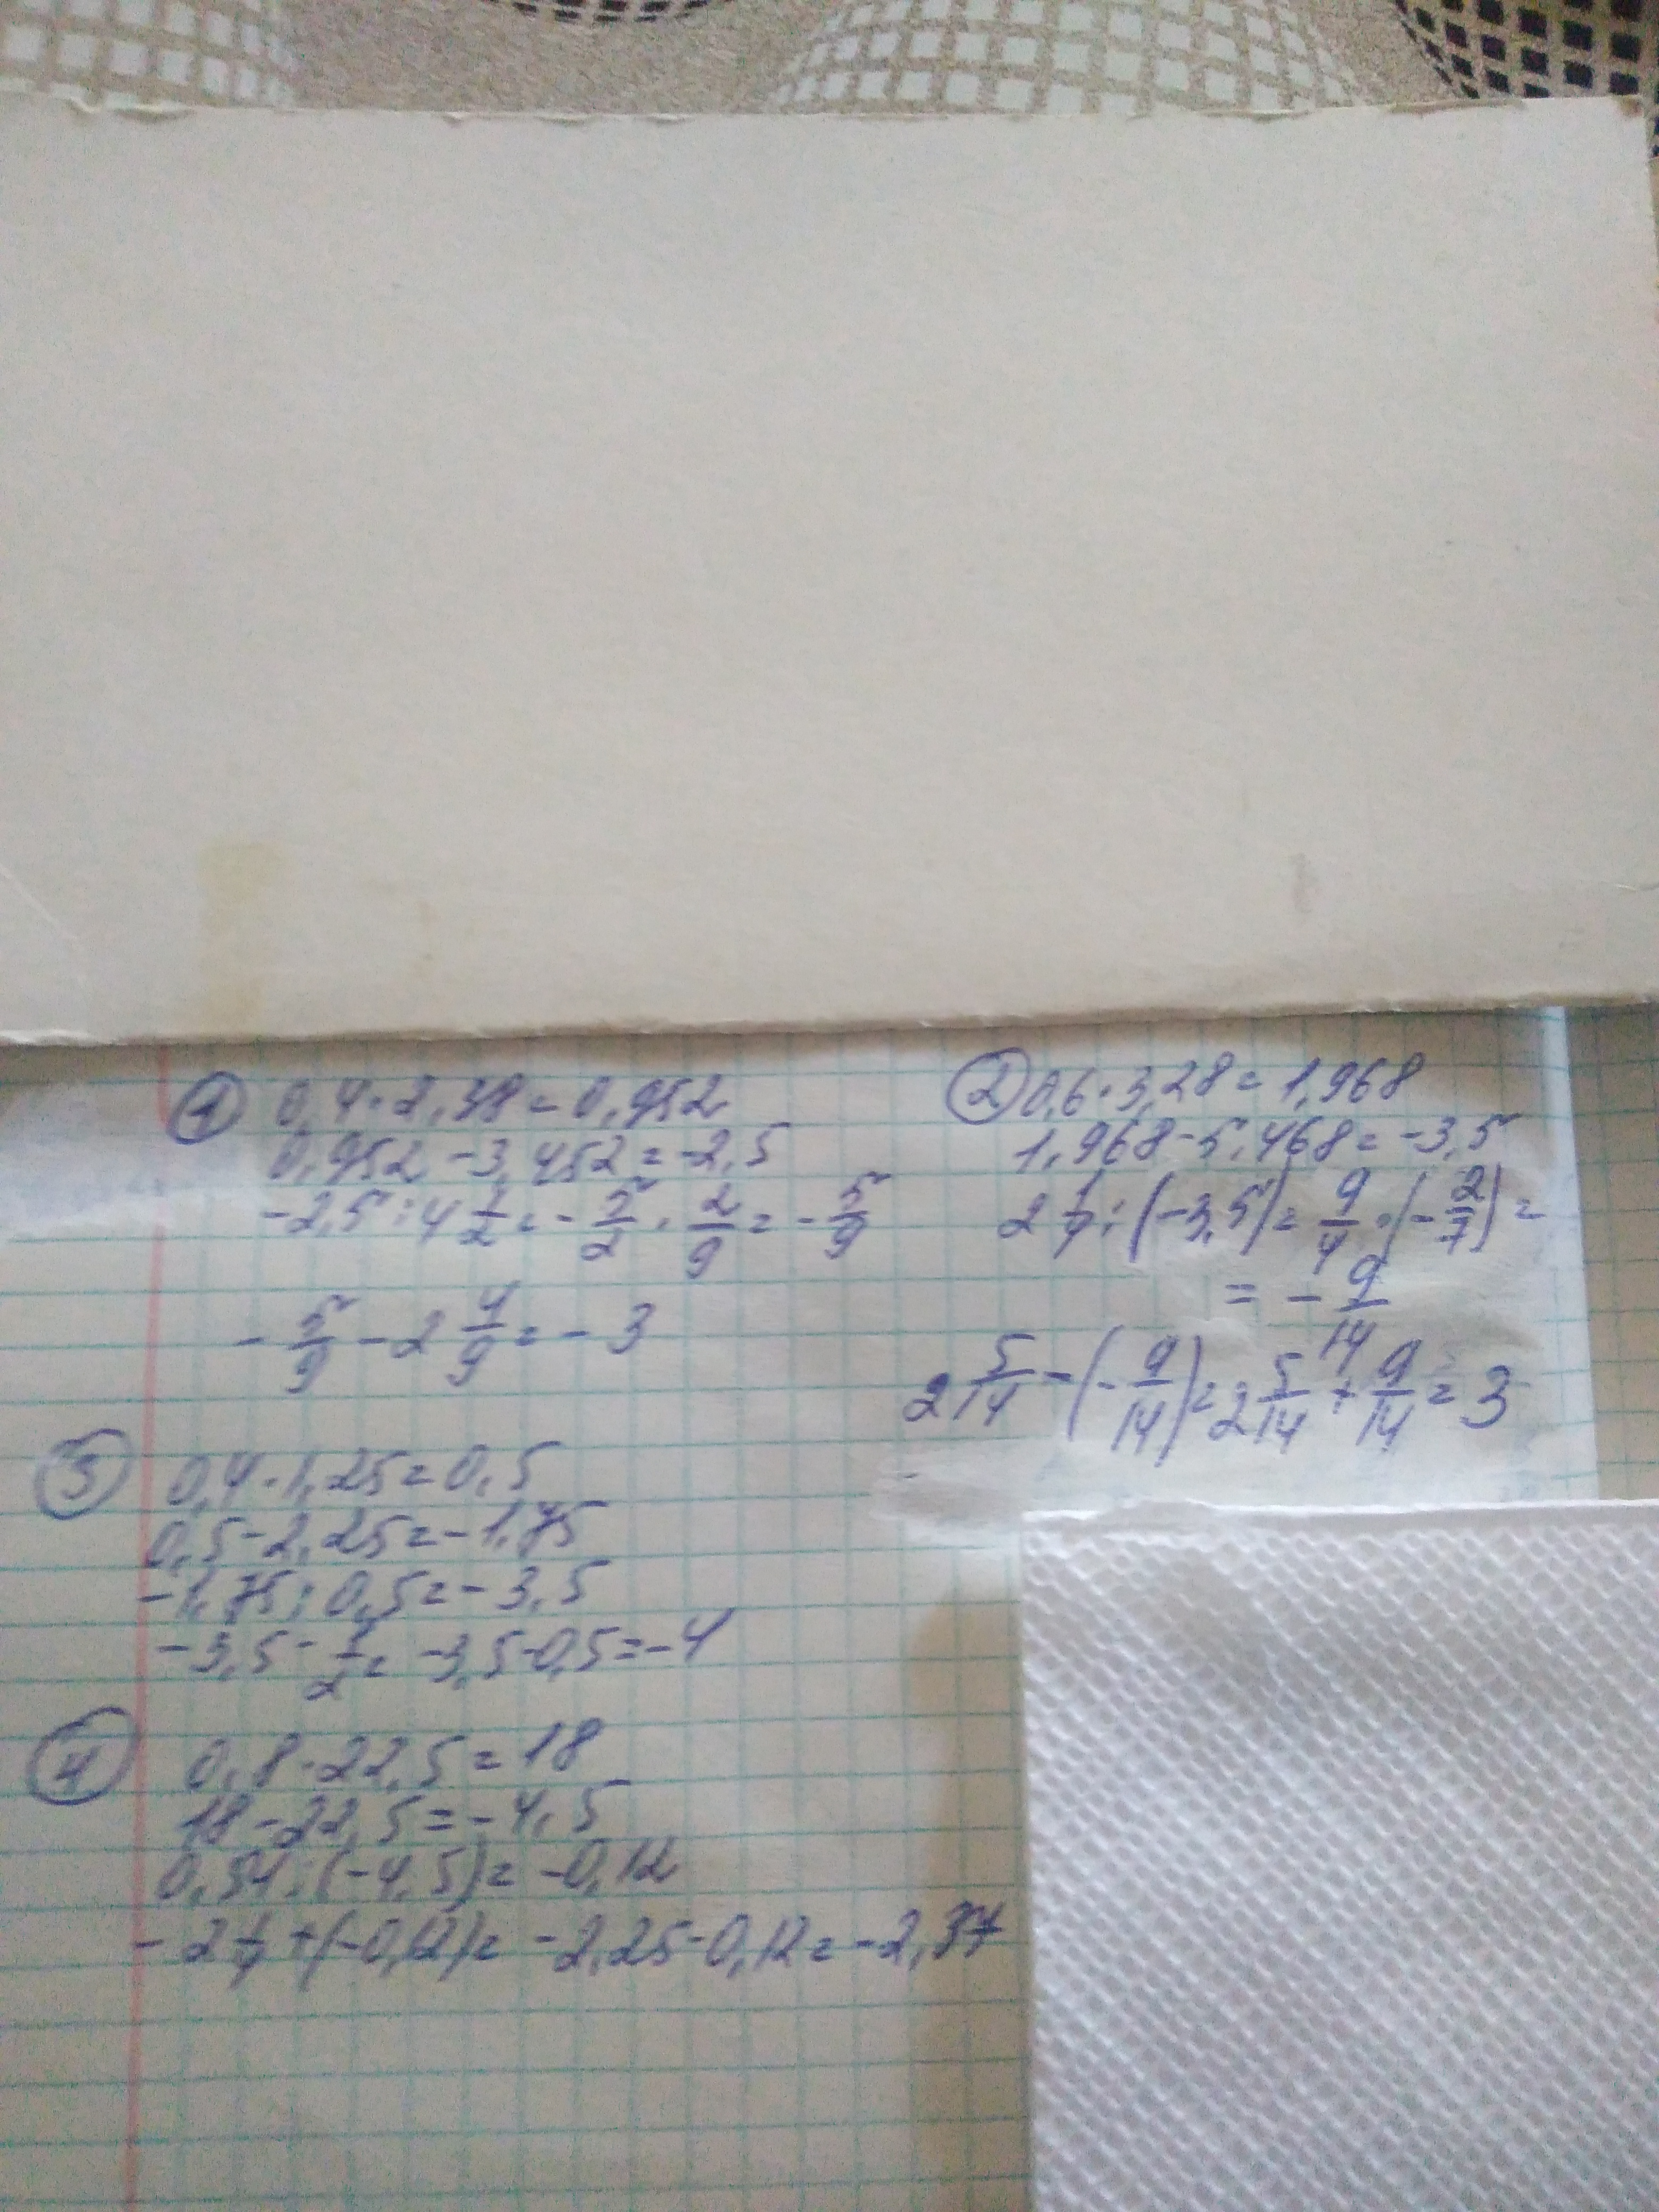 ① 0,4·2,38=0,952
0,952-3,452=-2,5
-2,5:4 1/2=-5/2·2/9=-5/9
-5/9-2 4/9=-3
② 0,6·3,28=1,968
1,968-5,468=-3,5
2 1/4:(-3,5)=9/4·(-2/7)=
=-9/14
2 5/14-(-9/14)=2 5/14+9/14=3
③ 0,4·1,25=0,5
0,5-2,25=-1,75
-1,75:0,5=-3,5
-3,5-1/2=-3,5-0,5=-4
④ 0,8·22,5=18
18-22,5=-4,5
0,54:(-4,5)=-0,12
-2 1/4+(-0,12)=-2,25-0,12=-2,37